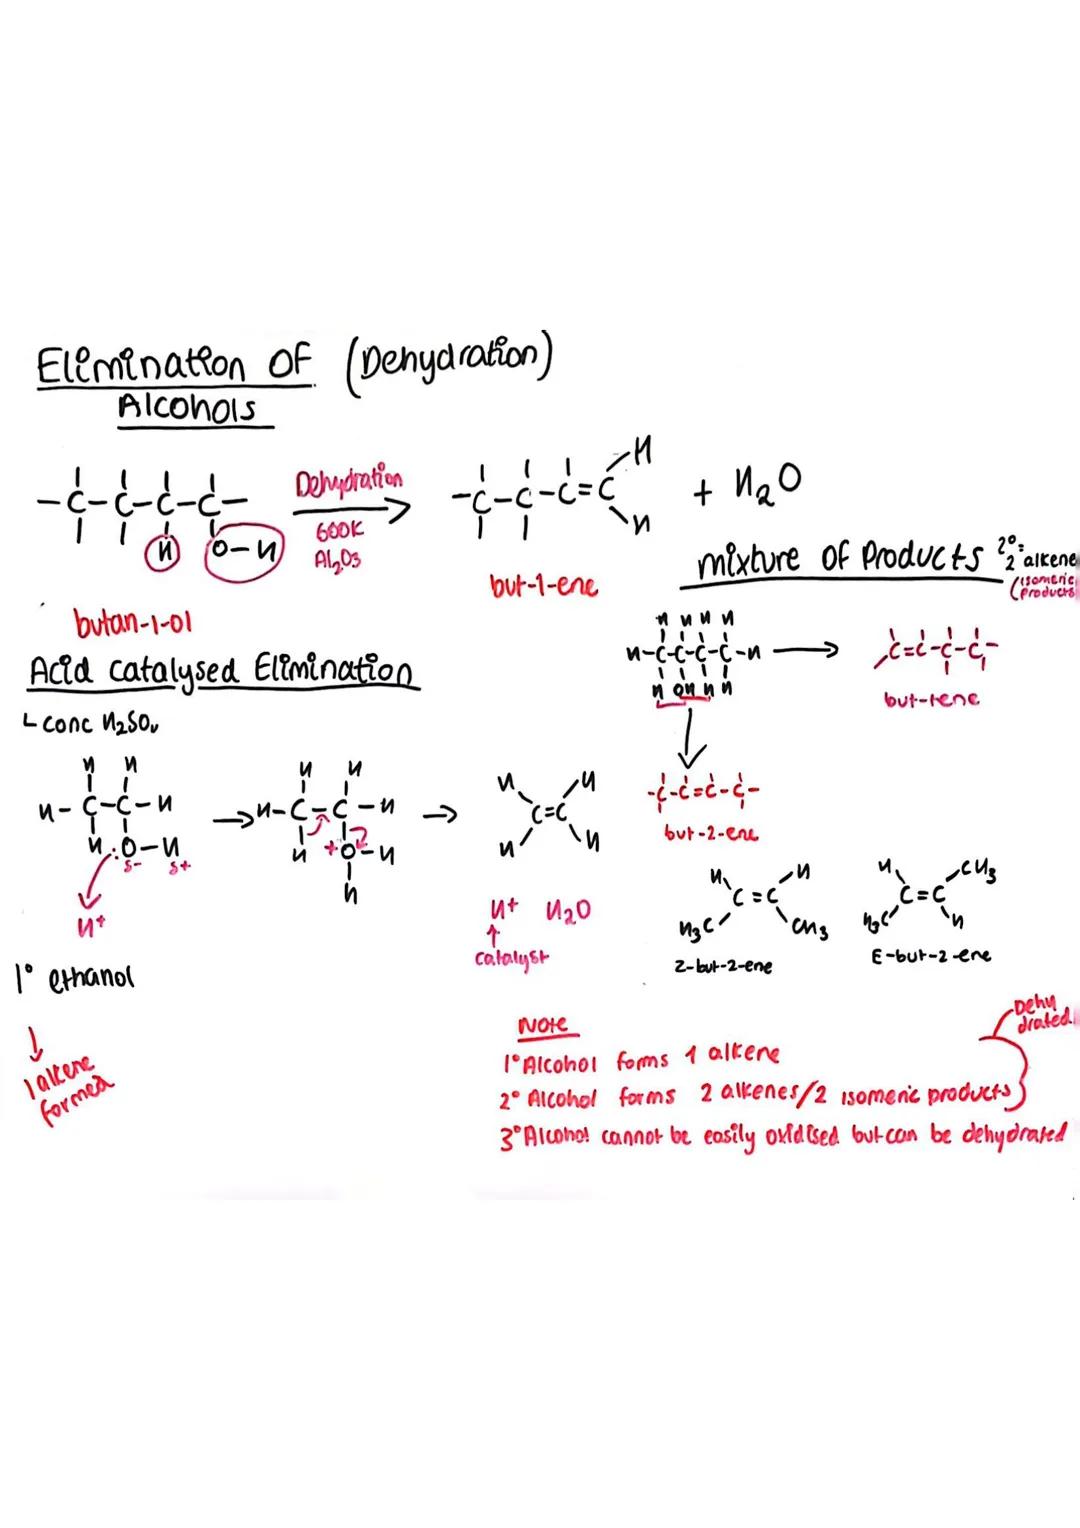 Elimination of (Dehydration)
Alcohols
-C-C-C-C-
H O-H
Dehydration
600K
Al2O3
-C-C-C=C
H
H
+ H2O
butan-1-ol
but-1-ene
mixture of Products 2°= 2 alkene
(isomeric products
H H H H
H-C-C-C-C-H
H OH H H
C=C-C-C-
but-1ene
-C-C=C-C-
but-2-ene
H CH3
C=C
H3C H
E-but-2-ene
H H
C=C
H3C CH3
Z-but-2-ene
Acid catalysed Elimination
conc H2SO4
H H
H-C-C-H
H :O-H
δ- δ+
H+
H H
H-C-C-H
H +O-H
H
H H
C=C
H H
H+ H2O
catalyst
1° ethanol
1 alkene
formed
Note
1° Alcohol forms 1 alkene
2° Alcohol forms 2 alkenes/2 isomeric products
Dehydrated
3° Alcohol cannot be easily oxidised but can be dehydrated